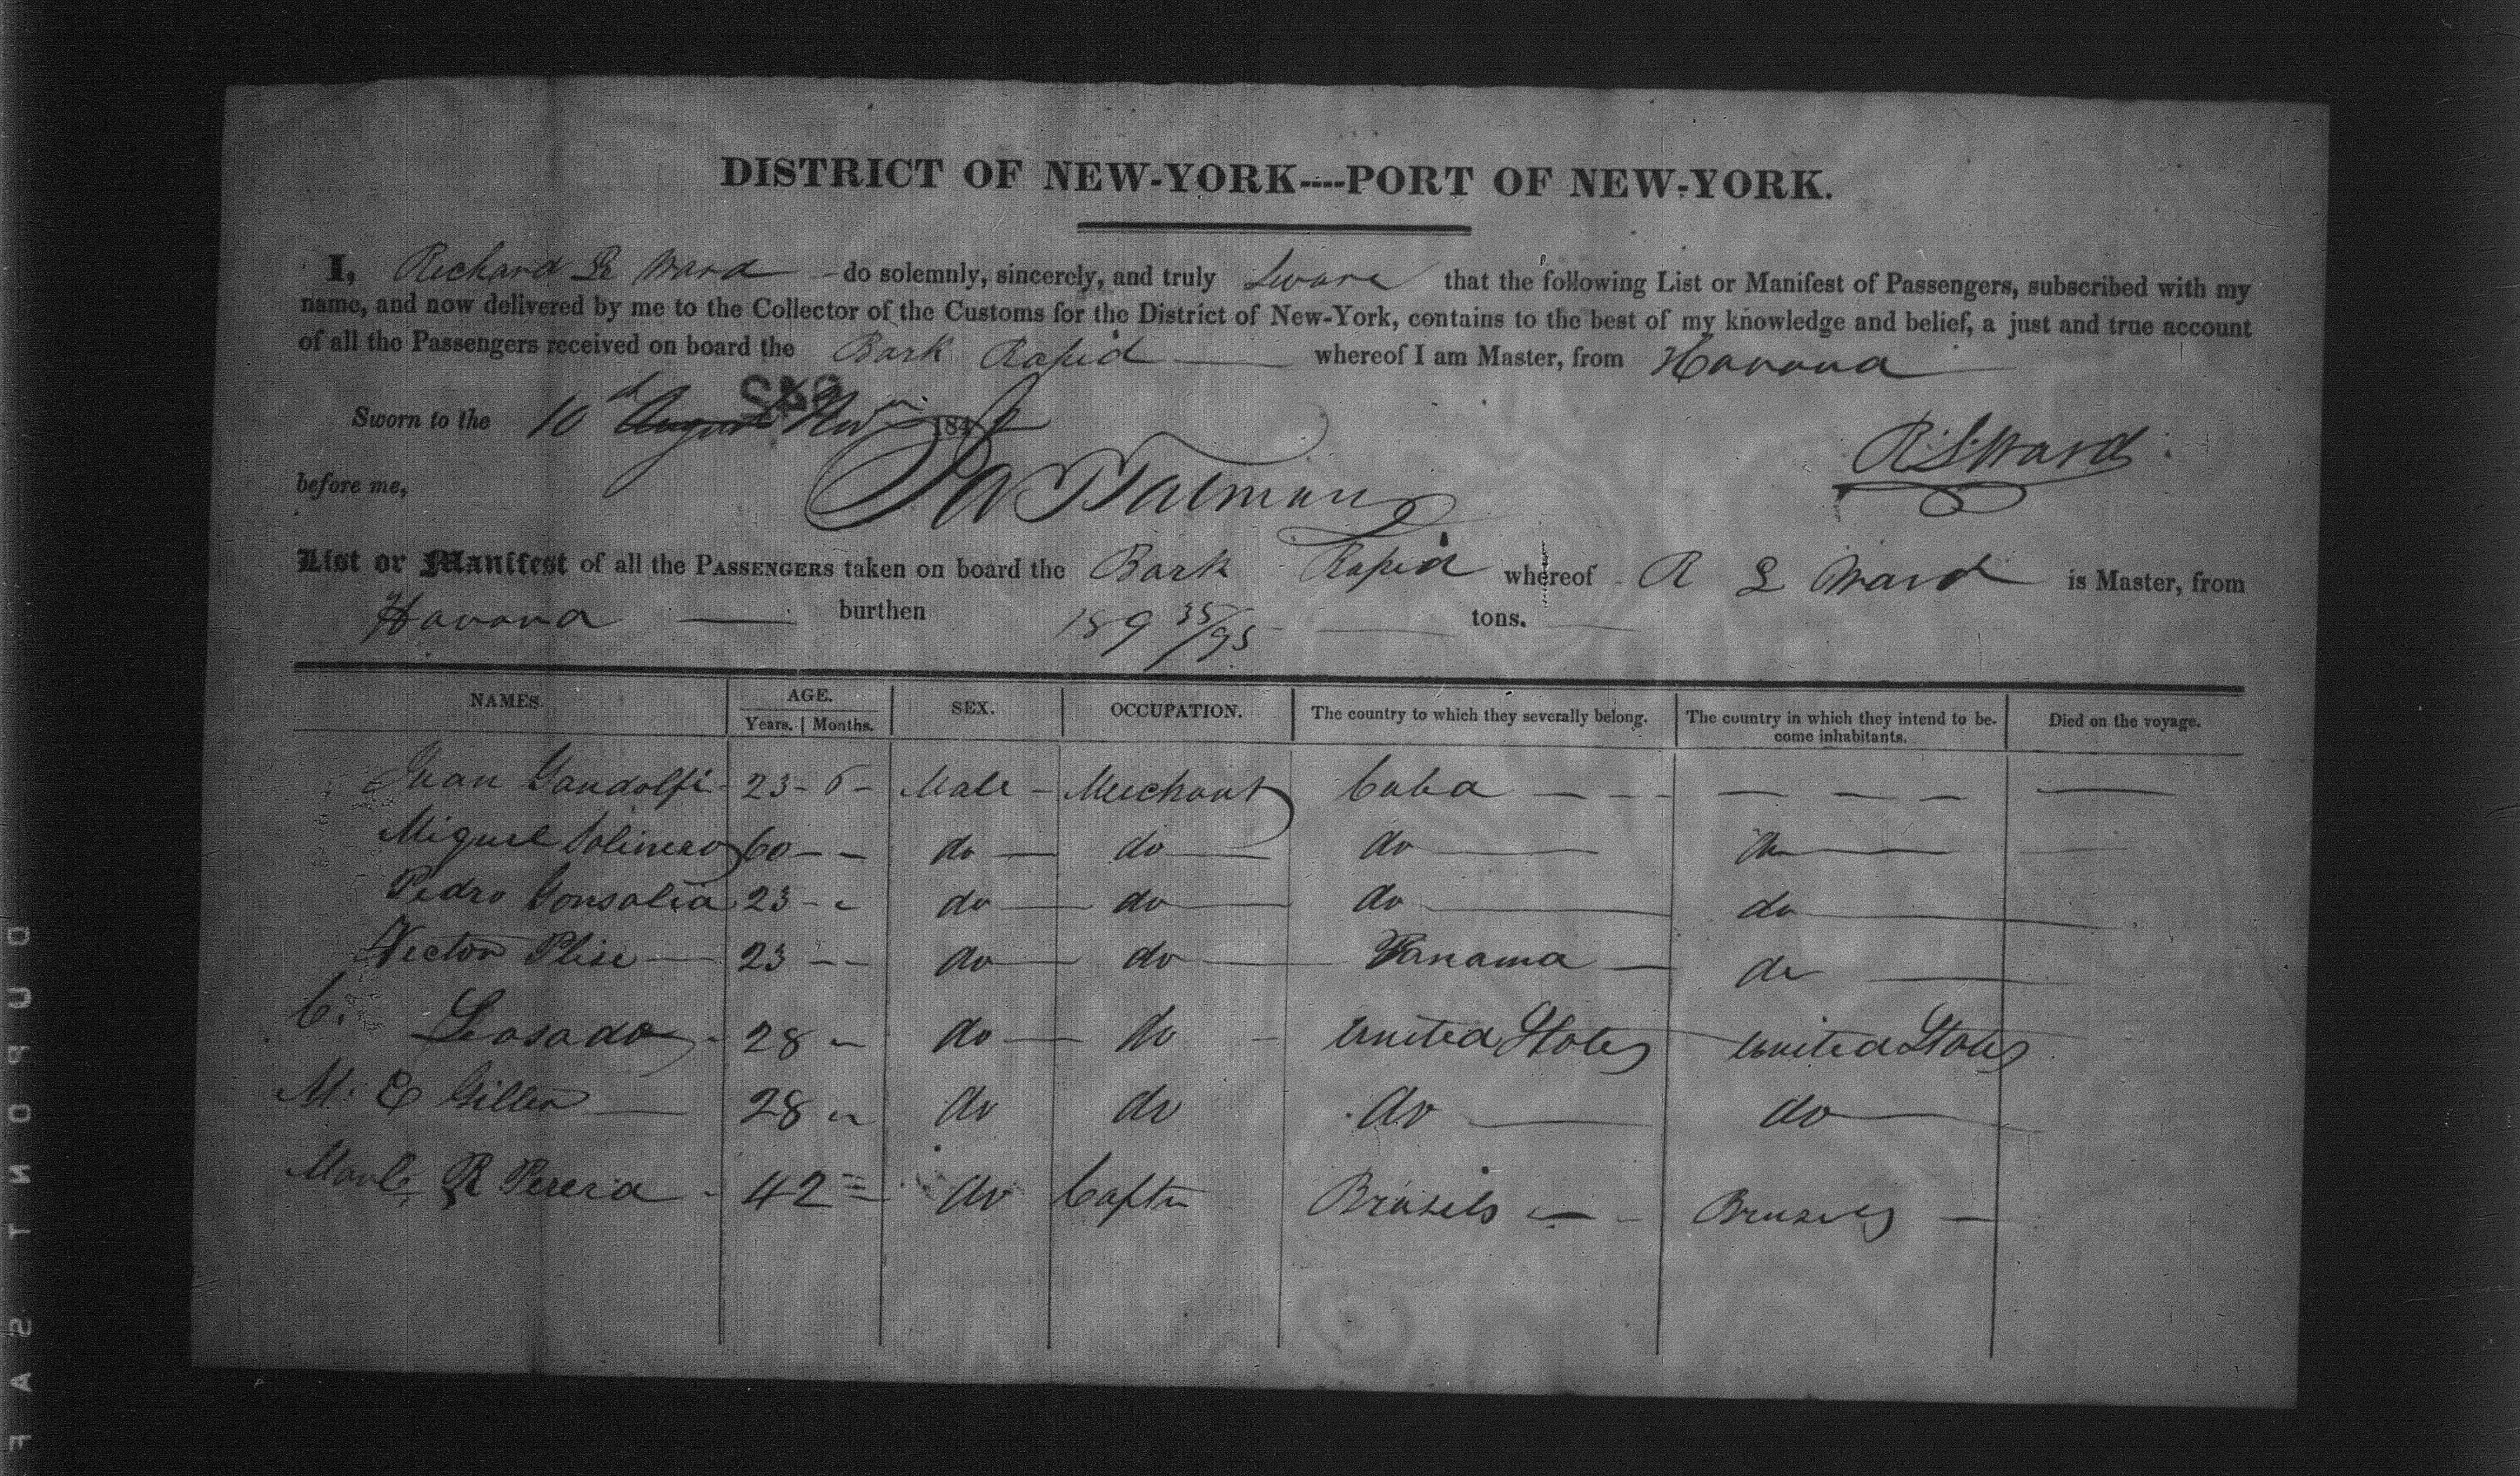 DISTRICT OF NEW-YORK----PORT OF NEW-YORK.
I, Richard L Ward do solemnly, sincerely, and truly Sware that the following List or Manifest of Passengers, subscribed with my
name, and now delivered by me to the Collector of the Customs for the District of New-York, contains to the best of my knowledge and belief, a just and true account
of all the Passengers received on board the Bark Rapid whereof I am Master, from Havana
Sworn to the 10 August Nov 184
R. L. Ward
before me,
List or Manifest of all the PASSENGERS taken on board the Bark Rapid whereof R L Ward is Master, from
Havana burthen 189 35/95 tons.
NAMES. AGE. SEX. OCCUPATION. The country to which they severally belong. The country in which they intend to be- Died on the voyage.
Years. | Months. come inhabitants.
Juan Gandolfi 23 - 6 - Male - Merchant Cuba
Miguel Solinero 60 - - do do do do
Pedro Gonsalia 23 - - do do do do
Victor Plise 23 - - do do Panama do
C. Losado 28 do do United States United States
M. E Giller 28 do do do do
R Perera 42 do Captn Brasils Brasils
FAST NO UPOD